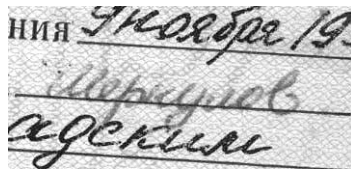 ния 9 ноября 19
Меркулов
адским